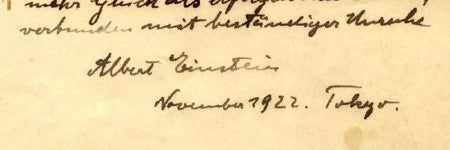 mehr Glück als
verbunden mit beständiger Unruhe
Albert Einstein
November 1922. Tokyo.